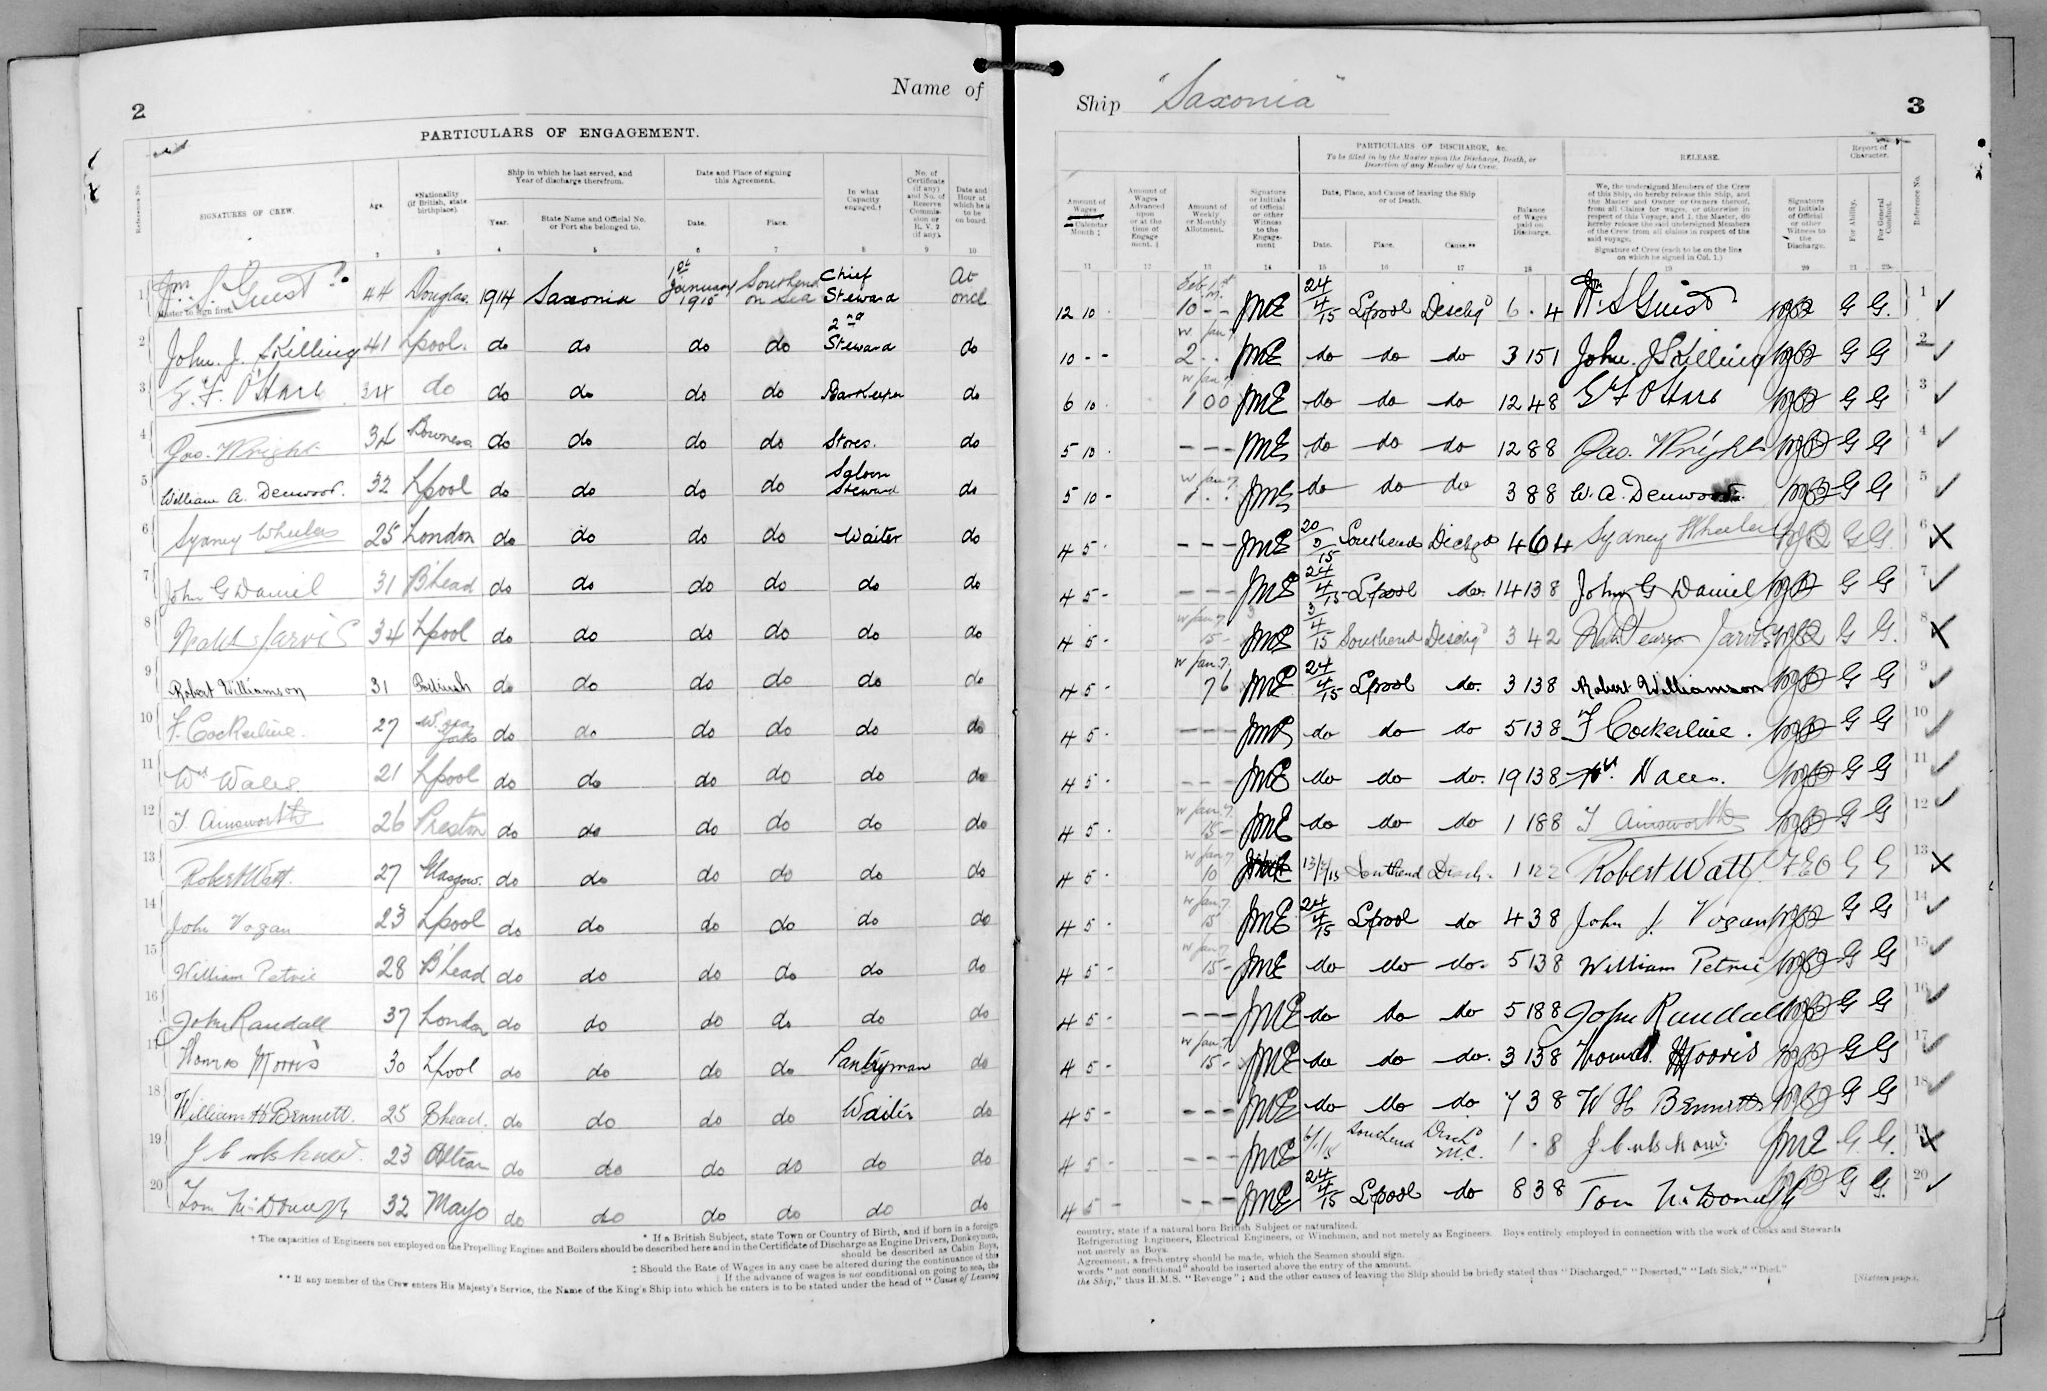 2
Name of
PARTICULARS OF ENGAGEMENT.
Reference No.
SIGNATURES OF CREW.
Age.
*Nationality (if British, state birthplace).
Ship in which he last served, and Year of discharge therefrom.
Year.
State Name and Official No. or Port she belonged to.
Date and Place of signing this Agreement.
Date.
Place.
In what Capacity engaged.†
No. of Certificate (if any) and No. of Reserve Commission or R. V. 2 (if any).
Date and Hour at which he is to be on board.
2 3 4 5 6 7 8 9 10
1 Wm. S. Guist 44 Douglas 1914 Saxonia 1st January 1915 Southend on Sea Chief Steward At once
Master to sign first.
2 John. J. Skilling 41 Lpool. do do do do 2nd Steward do
3 G. F. O'Hare 34 do do do do do Barkeeper do
4 Jas. Wright 34 do do do do Stores. do
5 William A. Denwood. 32 Lpool do do do do Saloon Steward do
6 Sydney Wheeler 25 London do do do do Waiter do
7 John G Daniel 31 B'head do do do do do do
8 Jarvis 34 Lpool do do do do do do
9 Robert Williamson 31 do do do do do do
10 F. Cockerline. 27 do do do do do do
11 Wm Wales. 21 Lpool do do do do do do
12 T. Ainsworth 26 Preston do do do do do do
13 Robert Watt. 27 Glasgow. do do do do do do
14 John Vogan 23 Lpool do do do do do do
15 William Petrie 28 B'head do do do do do do
16 John Randall 37 London do do do do do do
17 Thomas Morris 30 Lpool do do do do Pantryman do
18 William H. Bennett. 25 Bhead. do do do do Waiter do
19 J. 23 do do do do do do
20 Tom McDonagh 32 Mayo do do do do do do
* If a British Subject, state Town or Country of Birth, and if born in a foreign
† The capacities of Engineers not employed on the Propelling Engines and Boilers should be described here and in the Certificate of Discharge as Engine Drivers, Donkeymen,
should be described as Cabin Boys,
‡ Should the Rate of Wages in any case be altered during the continuance of this
| If the advance of wages is not conditional on going to sea, the
** If any member of the Crew enters His Majesty's Service, the Name of the King's Ship into which he enters is to be stated under the head of "Cause of Leaving
Ship "Saxonia"
3
Amount of Wages Calendar Month ‡
Amount of Wages Advanced upon or at the time of Engagement. ‖
Amount of Weekly or Monthly Allotment.
Signature or Initials of Official or other Witness to the Engagement
PARTICULARS OF DISCHARGE, &c.
To be filled in by the Master upon the Discharge, Death, or Desertion of any Member of his Crew.
Date, Place, and Cause of leaving the Ship or of Death.
Date.
Place.
Cause.**
Balance of Wages paid on Discharge.
RELEASE.
We, the undersigned Members of the Crew of this Ship, do hereby release this Ship, and the Master and Owner or Owners thereof, from all Claims for wages, or otherwise in respect of this Voyage, and I, the Master, do hereby release the said undersigned Members of the Crew from all claims in respect of the said voyage.
Signature of Crew (each to be on the line on which he signed in Col. 1.)
Signature or Initials of Official or other Witness to the Discharge.
Report of Character.
For Ability.
For General Conduct.
Reference No.
11 12 13 14 15 16 17 18 19 20 21 22
12 10 Feb 1st m. 10 - - JME 24/4/15 Lpool Dischgd 6 . 4 Wm. S Guist G G. 1 ✓
10 - - w Jan 7. 2 . . JME do do do 3 15 1 John. J Skilling G G 2 ✓
6 10 . w Jan 7. 1 0 0 JME do do do 12 4 8 G F O'Hare G G 3 ✓
5 10 . - - - JME do do do 12 8 8 Jas. Wright G G 4 ✓
5 10 - w Jan 7. 1 . . JME do do do 3 8 8 W. A. Denwood. G G 5 ✓
4 5 . - - - JME Southend Dischgd 4 6 4 Sydney Wheeler G G. 6 X
4 5 - - - - JME 24/4/15 Lpool do. 14 13 8 John G Daniel G G 7 ✓
4 5 - w Jan 7. 15 - JME 3/4/15 Southend Dischgd 3 4 2 Jarvis G G. 8 X
4 5 - w Jan 7. 7 6 JME 24/4/15 Lpool do. 3 13 8 Robert Williamson G G 9 ✓
4 5 . - - - JME do do do 5 13 8 F Cockerline . G G 10 ✓
4 5 . - - - JME do do do. 19 13 8 Wm Wales. G G 11 ✓
4 5 . w Jan 7. 15 - JME do do do 1 18 8 T Ainsworth G G 12 ✓
4 5 . w Jan 7. 10 Southend Disch. 1 12 2 Robert Watt G G 13 X
4 5 - w Jan 7. 15 JME 24/4/15 Lpool do 4 3 8 John J. Vogan G G 14 ✓
4 5 - w Jan 7. 15 - JME do do do. 5 13 8 William Petrie G G 15 ✓
4 5 - - - - JME do do do 5 18 8 John Randall G G 16 ✓
4 5 - w Jan 7. 15 - JME do do do. 3 13 8 Thomas Morris G G 17 ✓
4 5 - - - - JME do do do 7 3 8 W H Bennett G G 18 ✓
4 5 - - - - JME 6/1/15 Southend Dischd M.C. 1 . 8 J JME G. G. 19 X
4 5 - - - - JME 24/4/15 Lpool do 8 3 8 Tom McDonagh G G. 20 ✓
country, state if a natural born British Subject or naturalized.
Refrigerating Engineers, Electrical Engineers, or Winchmen, and not merely as Engineers. Boys entirely employed in connection with the work of Cooks and Stewards
not merely as Boys.
Agreement, a fresh entry should be made, which the Seamen should sign.
words "not conditional" should be inserted above the entry of the amount.
the Ship," thus H.M.S. "Revenge"; and the other causes of leaving the Ship should be briefly stated thus "Discharged," "Deserted," "Left Sick," "Died."
[Sixteen pages.